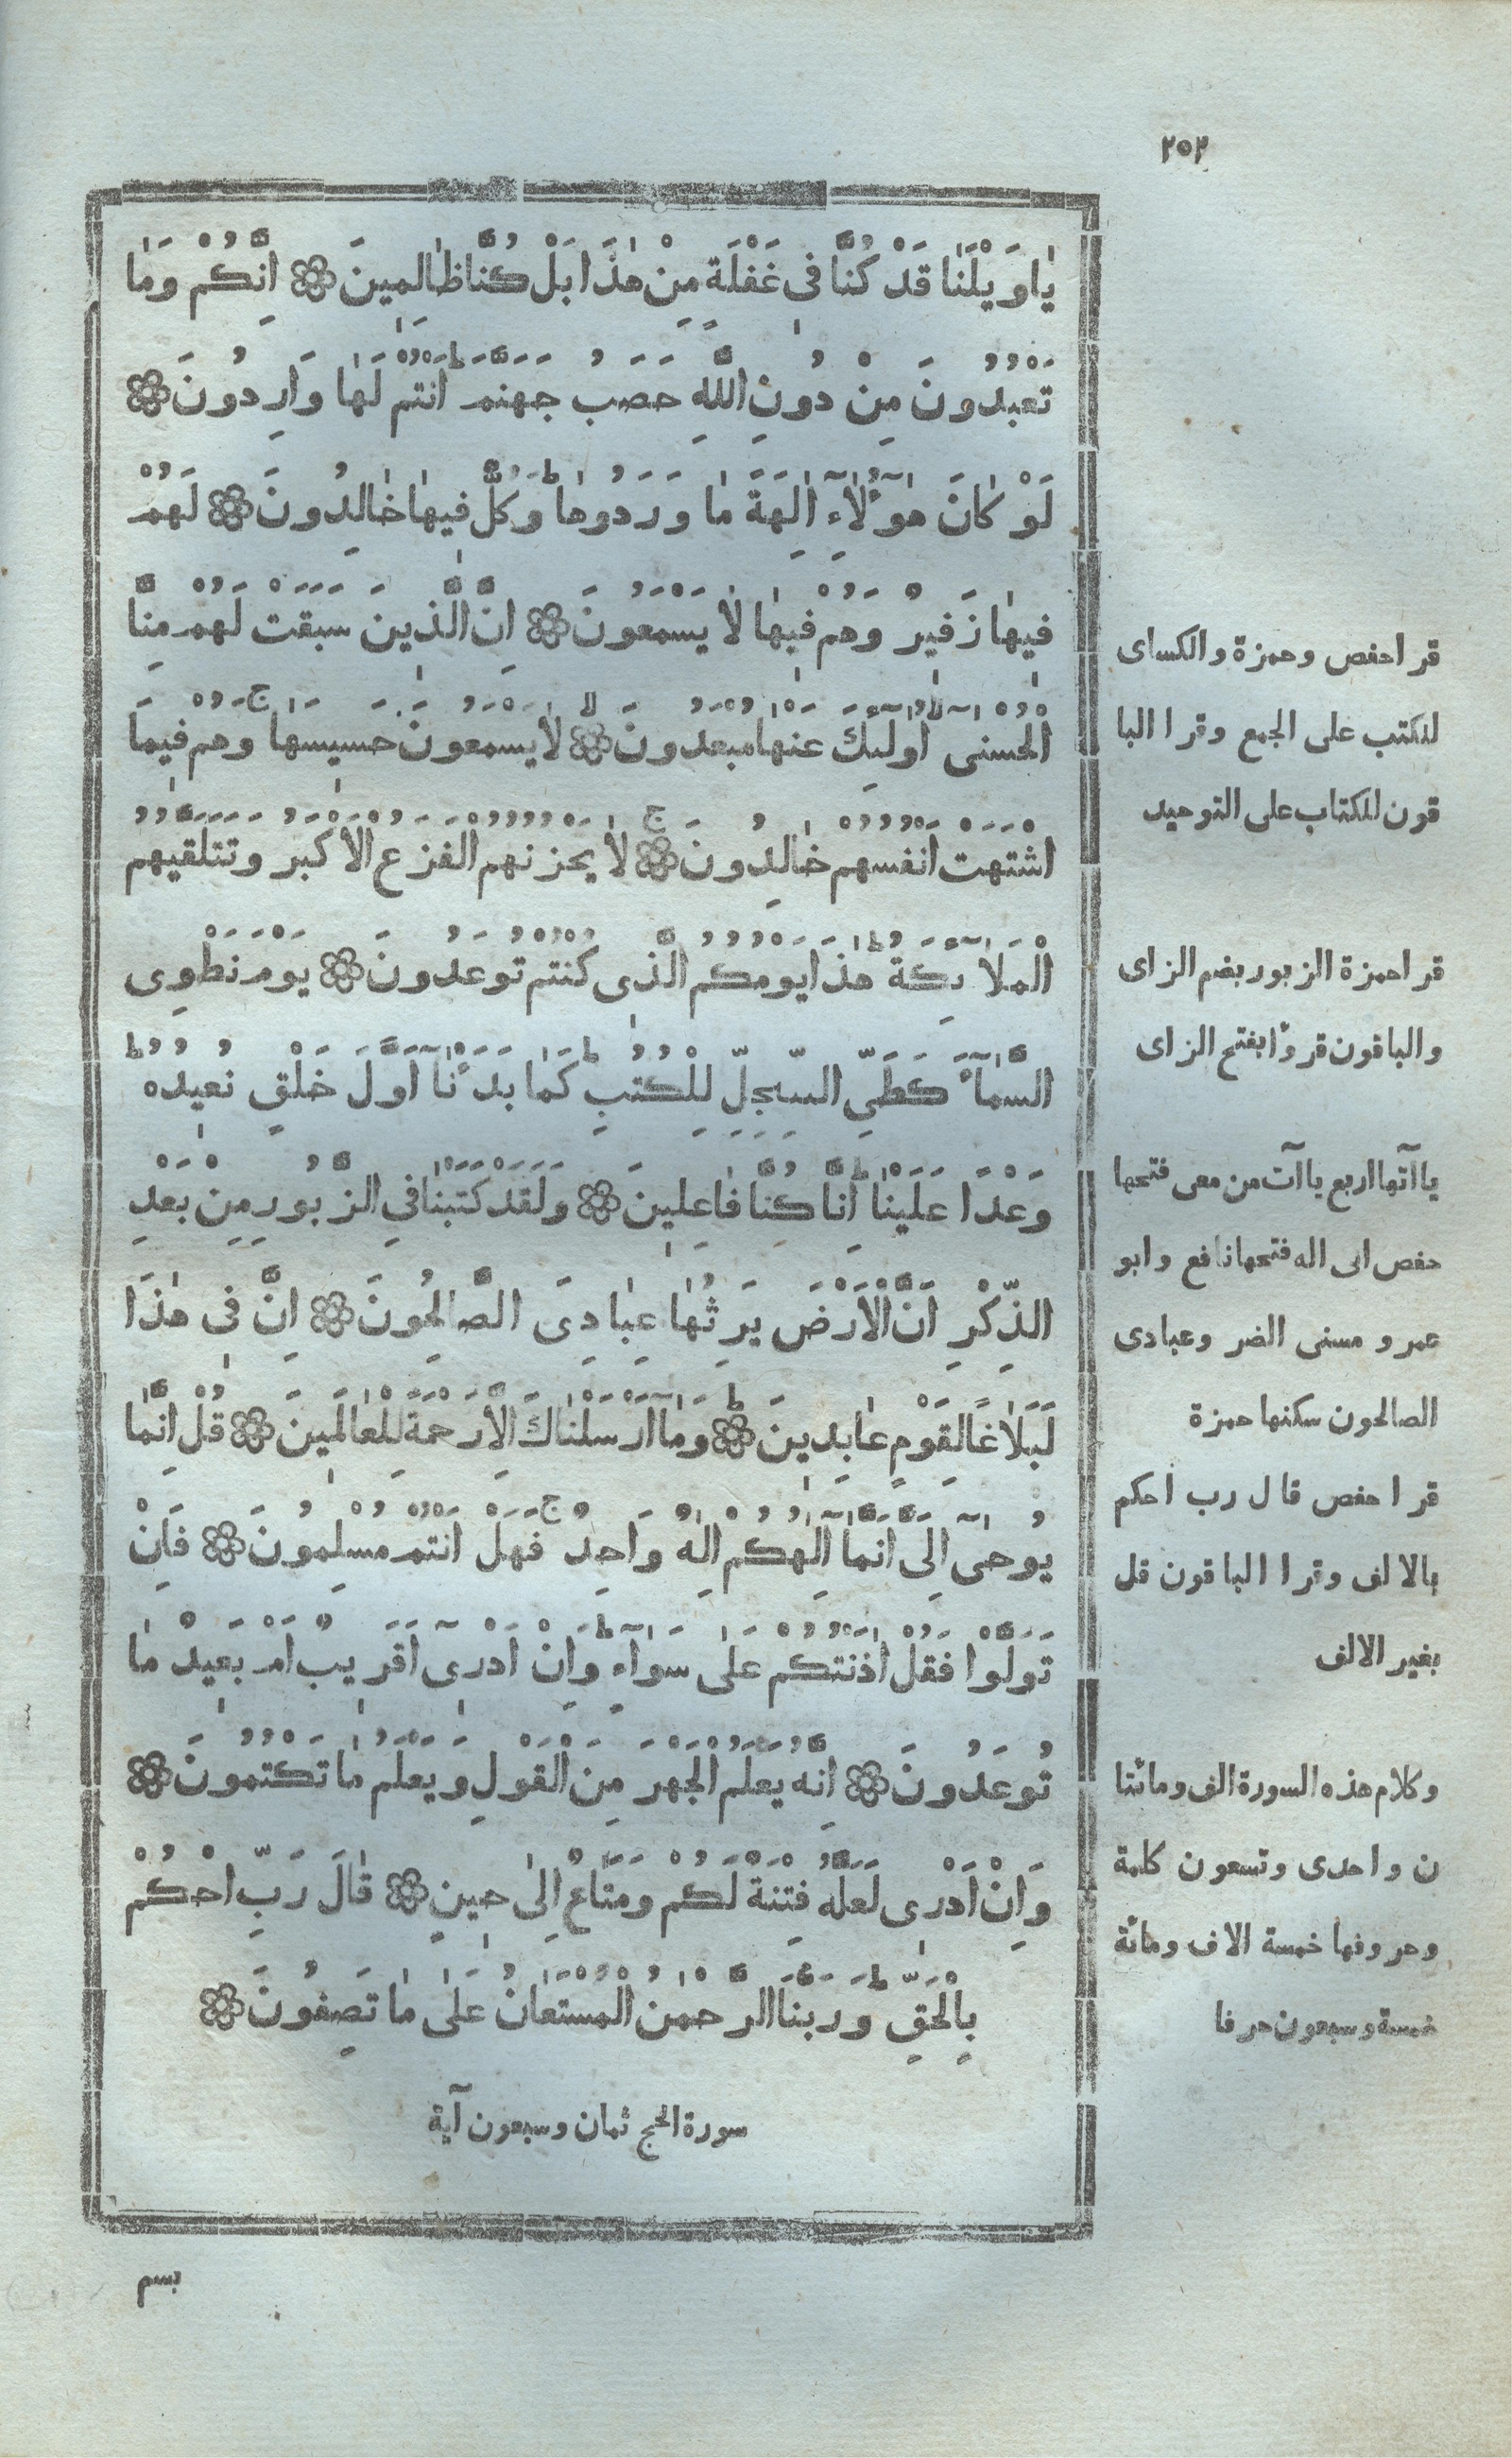 ٢٥٢
يَاوَيْلَنَا قَدْ كُنَّا فِى غَفْلَةٍ مِنْ هٰذَا بَلْ كُنَّا ظَالِمِينَ ۞ اِنَّكُمْ وَمَا
تَعْبُدُونَ مِنْ دُونِ اللَّهِ حَصَبُ جَهَنَّمَ ط اَنْتُمْ لَهَا وَارِدُونَ ۞
لَوْ كَانَ هٰٓؤُلَآءِ اٰلِهَةً مَا وَرَدُوهَا ط وَكُلٌّ فِيهَا خَالِدُونَ ۞ لَهُمْ
فِيهَا زَفِيرٌ وَهُمْ فِيهَا لَا يَسْمَعُونَ ۞ اِنَّ الَّذِينَ سَبَقَتْ لَهُمْ مِنَّا
الْحُسْنٰٓى اُولٰٓئِكَ عَنْهَا مُبْعَدُونَ ۞ لا لَا يَسْمَعُونَ حَسِيسَهَا ج وَهُمْ فِيمَا
اشْتَهَتْ اَنْفُسُهُمْ خَالِدُونَ ۞ ج لَا يَحْزُنُهُمُ الْفَزَعُ الْاَكْبَرُ وَتَتَلَقَّيهُمُ
الْمَلٰٓائِكَةُ ط هٰذَا يَوْمُكُمُ الَّذِى كُنْتُمْ تُوعَدُونَ ۞ يَوْمَ نَطْوِى
السَّمَآءَ كَطَىِّ السِّجِلِّ لِلْكُتُبِ ط كَمَا بَدَأْنَآ اَوَّلَ خَلْقٍ نُعِيدُهُ ط
وَعْدًا عَلَيْنَا ط اِنَّا كُنَّا فَاعِلِينَ ۞ وَلَقَدْ كَتَبْنَا فِى الزَّبُورِ مِنْ بَعْدِ
الذِّكْرِ اَنَّ الْاَرْضَ يَرِثُهَا عِبَادِىَ الصَّالِحُونَ ۞ اِنَّ فِى هٰذَا
لَبَلَاغًا لِقَوْمٍ عَابِدِينَ ۞ ط وَمَآ اَرْسَلْنَاكَ اِلَّا رَحْمَةً لِلْعَالَمِينَ ۞ قُلْ اِنَّمَا
يُوحٰٓى اِلَىَّ اَنَّمَآ اِلٰهُكُمْ اِلٰهٌ وَاحِدٌ ج فَهَلْ اَنْتُمْ مُسْلِمُونَ ۞ فَاِنْ
تَوَلَّوْا فَقُلْ اٰذَنْتُكُمْ عَلٰى سَوَآءٍ ط وَاِنْ اَدْرِىٓ اَقَرِيبٌ اَمْ بَعِيدٌ مَا
تُوعَدُونَ ۞ اِنَّهُ يَعْلَمُ الْجَهْرَ مِنَ الْقَوْلِ وَيَعْلَمُ مَا تَكْتُمُونَ ۞
وَاِنْ اَدْرِى لَعَلَّهُ فِتْنَةٌ لَكُمْ وَمَتَاعٌ اِلٰى حِينٍ ۞ قَالَ رَبِّ احْكُمْ
بِالْحَقِّ ط وَرَبُّنَا الرَّحْمٰنُ الْمُسْتَعَانُ عَلٰى مَا تَصِفُونَ ۞
سورة الحج ثمان وسبعون آية
بسم
قرا حفص وحمزة والكساى
للكتب على الجمع وقرا البا
قون للكتاب على التوحيد
قرا حمزة الزبور بضم الزاى
والباقون قروٴا بفتح الزاى
ياآتها اربع ياآت من معى فتحها
حفص انى اله فتحها نافع وابو
عمرو مسنى الضر وعبادى
الصالحون سكنها حمزة
قرا حفص قال رب احكم
بالالف وقرا الباقون قل
بغير الالف
وكلام هذه السورة الف ومائتا
ن واحدى وتسعون كلمة
وحروفها خمسة الاف ومائة
خمسة وسبعون حرفا